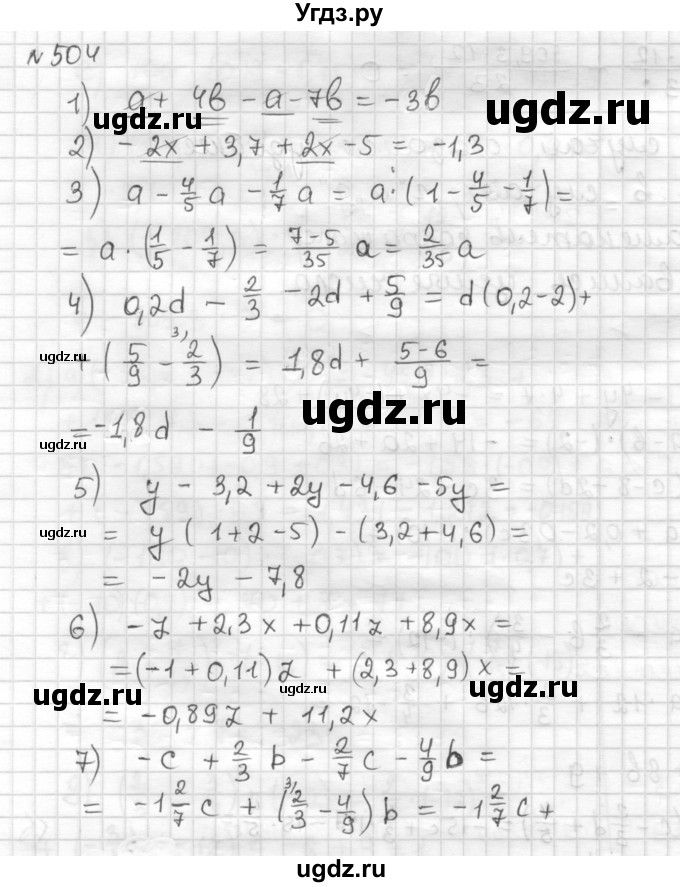 Угдз.ру
№ 504
1) a + 4b - a - 7b = -3b
ugdz.ru
ugdz.ru
2) - 2x + 3,7 + 2x - 5 = -1,3
3) a - 4/5 a - 1/7 a = a · (1 - 4/5 - 1/7) =
= a · (1/5 - 1/7) = 7-5/35 a = 2/35 a
4) 0,2d - 2/3 - 2d + 5/9 = d(0,2-2)+
ugdz.ru
+ (5/9 - 3) 2/3) = 1,8d + 5-6/9 =
ugdz.ru
ugdz.ru
= -1,8d - 1/9
5) y - 3,2 + 2y - 4,6 - 5y =
ugdz.ru
= y (1+2-5) - (3,2+4,6) =
= -2y - 7,8
6) -z + 2,3x + 0,11z + 8,9x =
= (-1 + 0,11)z + (2,3+8,9)x =
ugdz.ru
ugdz.ru
ugdz.ru
= -0,89z + 11,2x
7) -c + 2/3 b - 2/7 c - 4/9 b =
= -1 2/7 c + (3) 2/3 - 4/9) b = -1 2/7 c +
ugdz.ru
ugdz.ru
ugdz.ru